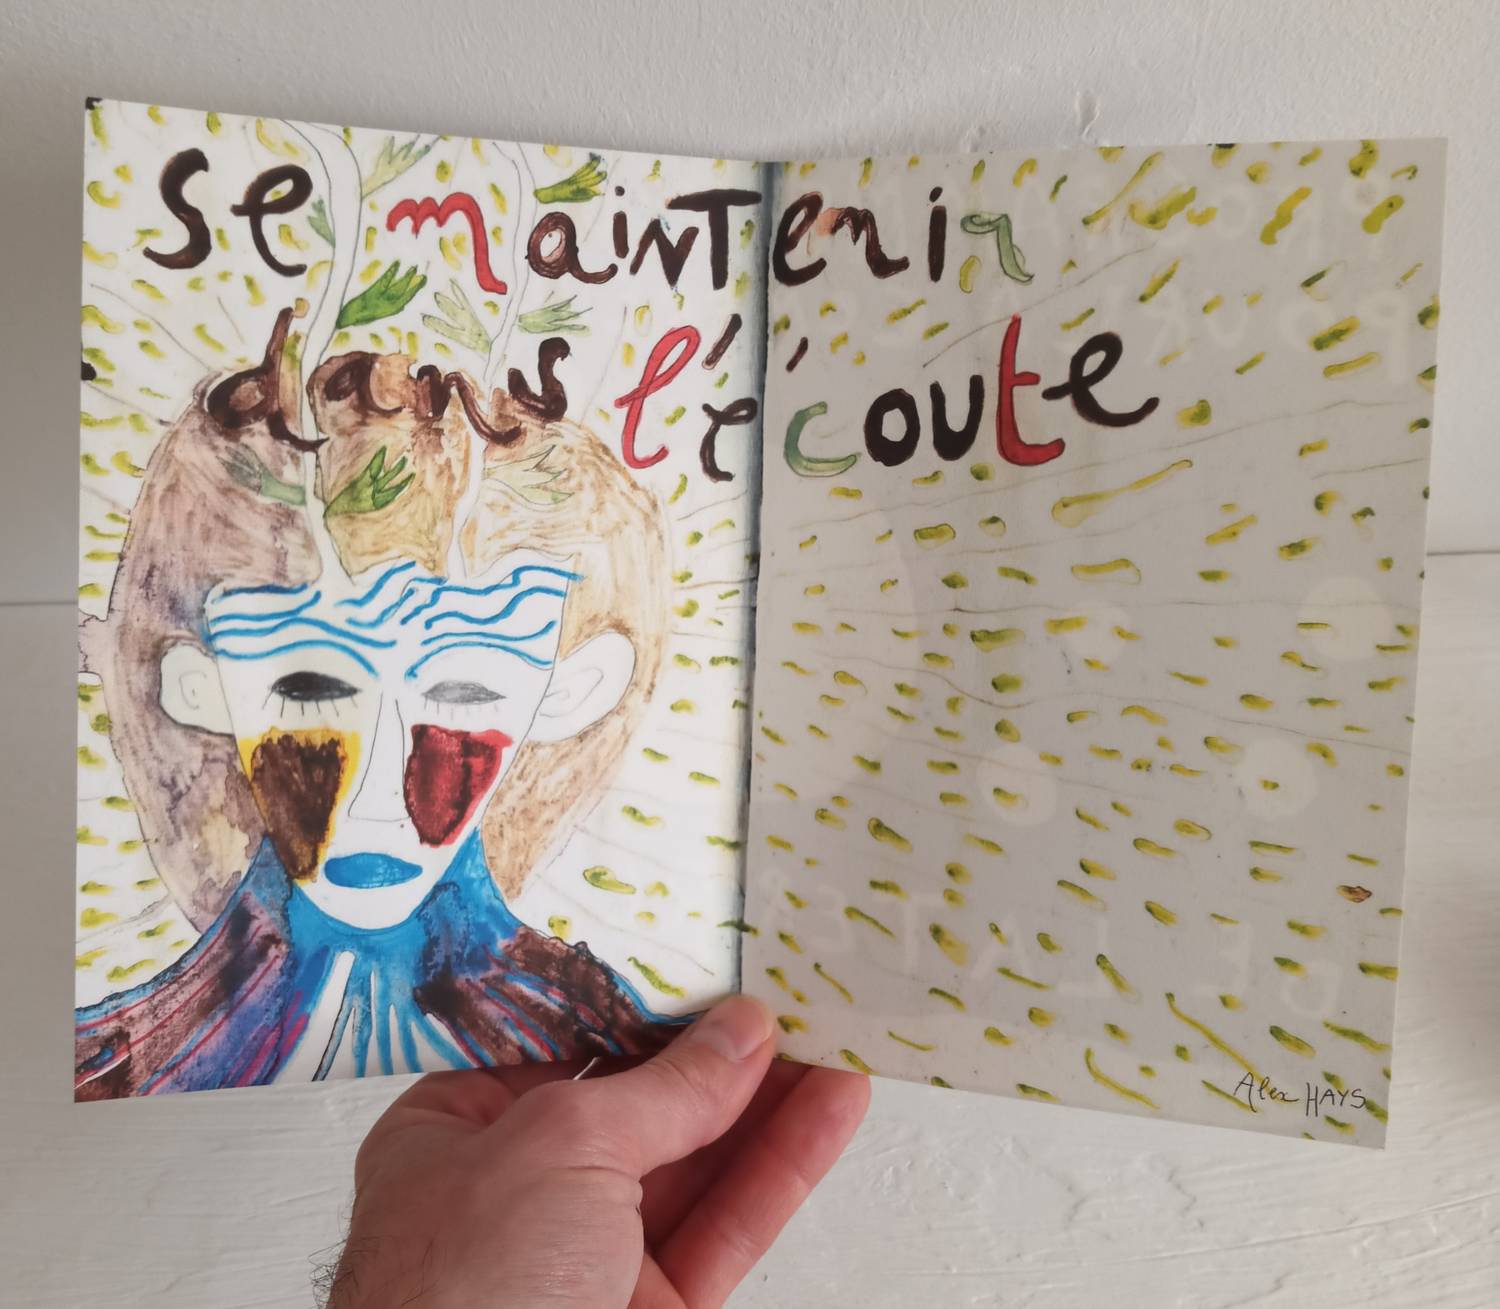 se maintenir
dans l'écoute
Alex HAYS